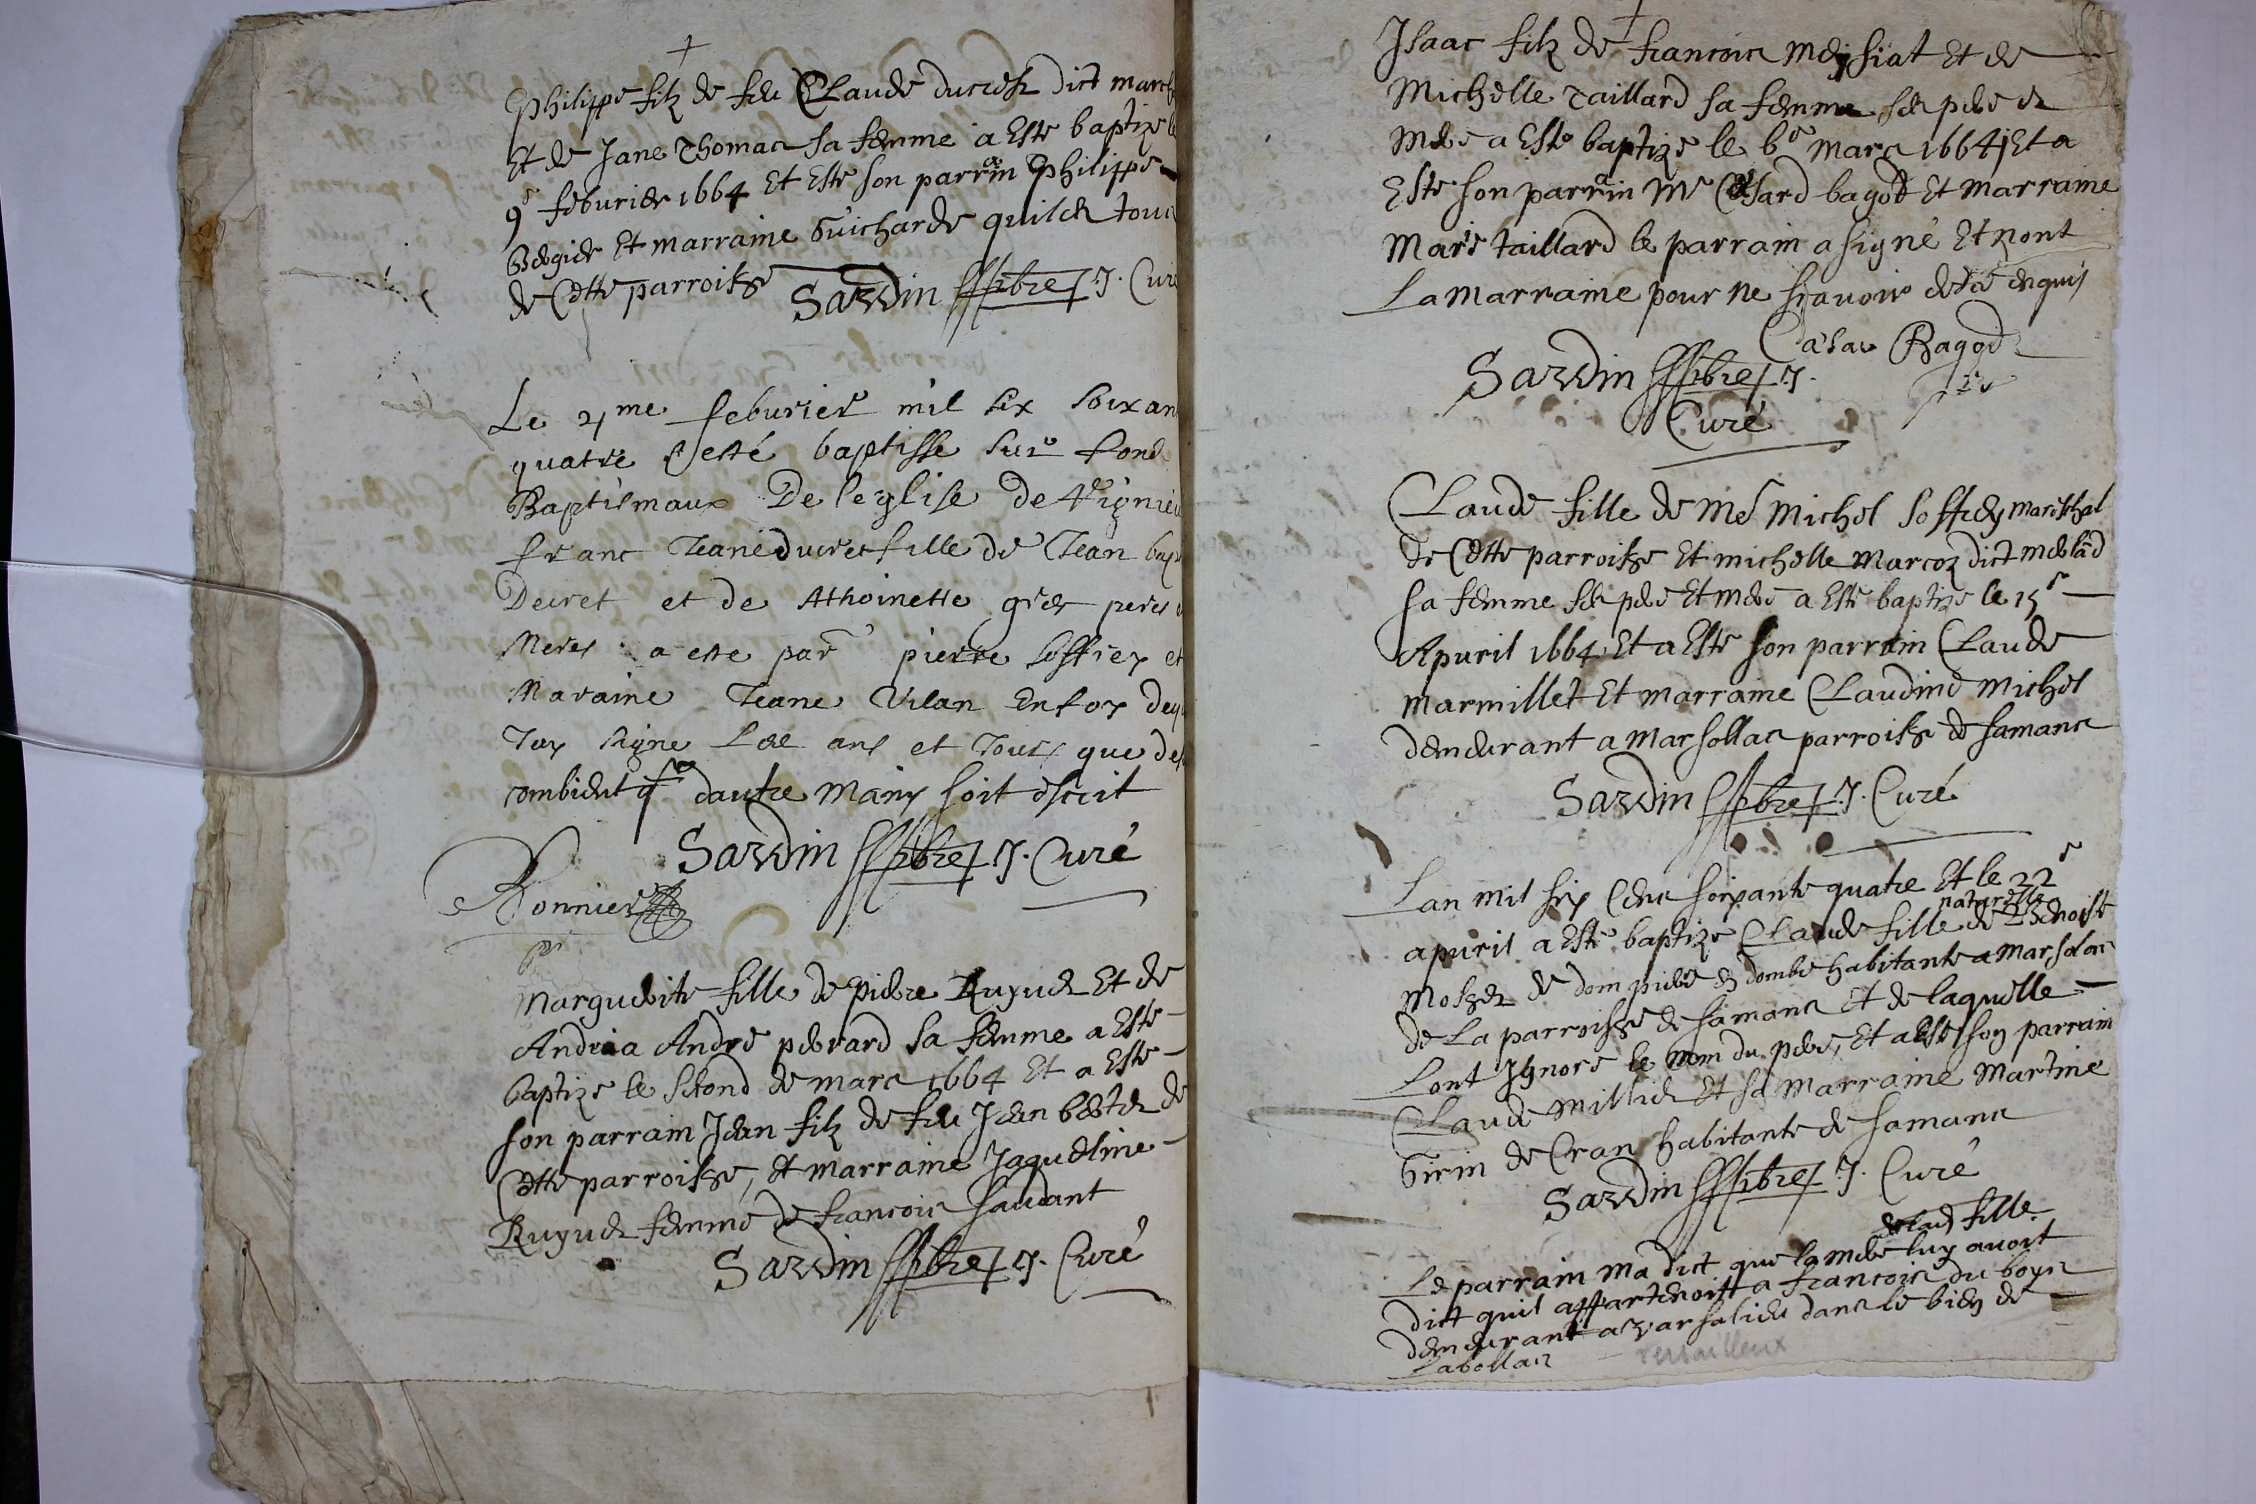 Philippe filz de feu Claude ducrest dict march
Et de Jane Thomas sa femme a Este baptize le
9e feburier 1664 Et Este son parrain Philippe
Et marraine Guicharde quilet tous
de Cette parroisse Sardin pbre J. Curé
Le 21me feburier mil six soixan
quatre esté baptisse sur fond
Baptismaux De leglise de
franc Jeane ducret fille de Jean bap
Decret et de Athoinette pere
Meres a este par pierre soffrey et
Maraine Jeane Vilan En foy dequ
Jay signe an et Jours que de
combient q dautre Main soit escrit
Sardin pbre J. Curé
Bonnier
pbr
Marguerite fille de pierre Ruyuet Et de
Andrea André perard sa femme a Este
baptize le second de mars 1664 Et a Este
son parrain Jean filz de feu Jean de
Cette parroisse, Et marraine Jaqueline
Ruyuet femme de francois saudant
Sardin pbre J. Curé
Isaac filz de francois Meysiat Et de
Michelle Taillard sa femme ses pere et
Mere a Este baptize le be mars 1664 Et a
Este son parrain Mr Cesard bagod Et marraine
Marie taillard le parrain a signé Et non
La marraine pour ne scavoir de ce enquis
Cæsar Bagod
Sardin pbre J.
Curé
Claude fille de Me Michel soffrey mareschal
de Cette parroisse Et michelle Marcoz dict merlad
sa femme ses pere Et mere a Este baptize le 15e
Apuril 1664 Et a Este son parrain Claude
marmillet Et marraine Claudine Michel
demeurant a Marsollas parroisse de samans
Sardin pbre J. Curé
Lan mil six Cens soixante quatre Et le 22e
apuril a Este baptize Claude fille naturelle de Benoiste
de dom pierre en dombe habitante a Marsolas
de La parroisse de samans Et de laquelle
Lont Ignore le nom du pere, Et a Este son parrain
Claude Milliet Et sa Marraine Martine
Girin de Cran habitante de samans
Sardin pbre J. Curé
Le parrain ma dict que la mere de lad fille luy avoit
dict quil appartenoit a francois du boys
demeurant a varsalieu dans le bien de
Labollas Versailleux